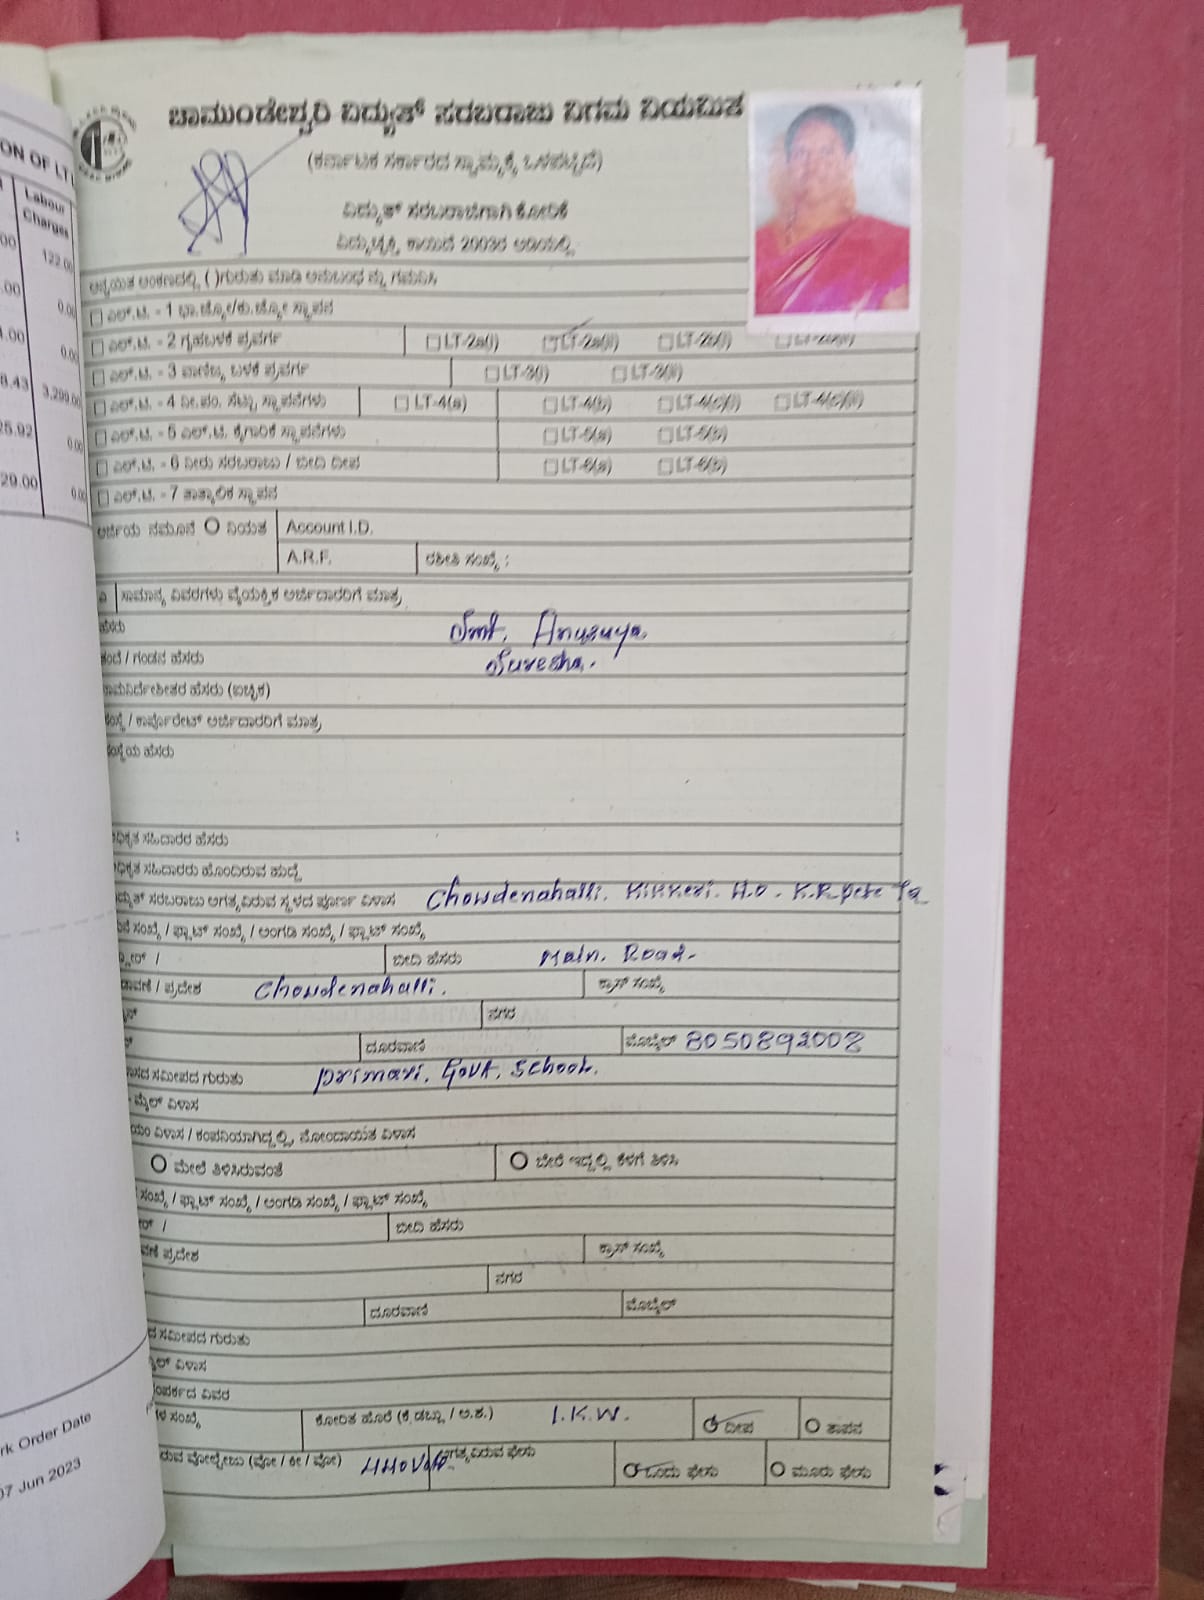 ON OF LT
Labour
Charges
00
122.00
.00
0.00
.00
0.00
8.43
3,299.00
25.92
0.00
29.00
0.00
rk Order Date
07 Jun 2023
ಚಾಮುಂಡೇಶ್ವರಿ ವಿದ್ಯುತ್ ಸರಬರಾಜು ನಿಗಮ ನಿಯಮಿತ
(ಕರ್ನಾಟಕ ಸರ್ಕಾರದ ಸ್ವಾಮ್ಯಕ್ಕೆ ಒಳಪಟ್ಟಿದೆ)
ವಿದ್ಯುತ್ ಸರಬರಾಜಿಗಾಗಿ ಕೋರಿಕೆ
ವಿದ್ಯುಚ್ಛಕ್ತಿ ಕಾಯಿದೆ 2003ರ ಅಡಿಯಲ್ಲಿ
ಅನ್ವಯಿತ ಅಂಕಣದಲ್ಲಿ ( )ಗುರುತು ಮಾಡಿ ಅನುಬಂಧ ಗಮನಿಸಿ
ಎಲ್.ಟಿ. - 1 ಭಾ.ಜ್ಯೋ/ಕು.ಜ್ಯೋ ಸ್ಥಾಪನ
ಎಲ್.ಟಿ. - 2 ಗೃಹಬಳಕೆ ಪ್ರವರ್ಗ LT-2a(i) LT-2a(ii) LT-2b(i)
ಎಲ್.ಟಿ. - 3 ವಾಣಿಜ್ಯ ಬಳಕೆ ಪ್ರವರ್ಗ LT-3(i) LT-3(ii)
ಎಲ್.ಟಿ. - 4 ನೀ.ಪಂ. ಸೆಟ್ಟು ಸ್ಥಾಪನೆಗಳು LT-4(a) LT-4(b) LT-4(c)(i) LT-4(c)(ii)
ಎಲ್.ಟಿ. - 5 ಎಲ್.ಟಿ. ಕೈಗಾರಿಕೆ ಸ್ಥಾಪನೆಗಳು LT-5(a) LT-5(b)
ಎಲ್.ಟಿ. - 6 ನೀರು ಸರಬರಾಜು / ಬೀದಿ ದೀಪ LT-6(a) LT-6(b)
ಎಲ್.ಟಿ. - 7 ತಾತ್ಕಾಲಿಕ ಸ್ಥಾಪನ
ಅರ್ಜಿಯ ನಮೂನೆ ನಿಯತ Account I.D.
A.R.F. ರಶೀತಿ ಸಂಖ್ಯೆ :
ಎ ಸಾಮಾನ್ಯ ವಿವರಗಳು ವೈಯಕ್ತಿಕ ಅರ್ಜಿದಾರರಿಗೆ ಮಾತ್ರ
ಹೆಸರು Smt. Anusuya
ತಂದೆ / ಗಂಡನ ಹೆಸರು Suresha.
ನಾಮನಿರ್ದೇಶಿತರ ಹೆಸರು (ಐಚ್ಛಿಕ)
ಸಂಸ್ಥೆ / ಕಾರ್ಪೊರೇಟ್ ಅರ್ಜಿದಾರರಿಗೆ ಮಾತ್ರ
ಸಂಸ್ಥೆಯ ಹೆಸರು
ಧಿಕೃತ ಸಹಿದಾರರ ಹೆಸರು
ಧಿಕೃತ ಸಹಿದಾರರು ಹೊಂದಿರುವ ಹುದ್ದೆ
ದ್ಯುತ್ ಸರಬರಾಜು ಅಗತ್ಯವಿರುವ ಸ್ಥಳದ ಪೂರ್ಣ ವಿಳಾಸ Chowdenahalli. Kikkeri. H.o. K.R.pete Ta
ಸಂಖ್ಯೆ / ಫ್ಲಾಟ್ ಸಂಖ್ಯೆ / ಅಂಗಡಿ ಸಂಖ್ಯೆ / ಫ್ಲಾಟ್ ಸಂಖ್ಯೆ
/ ಬೀದಿ ಹೆಸರು Main. Road.
ಡಾವಣೆ / ಪ್ರದೇಶ Chowdenahalli. ಕ್ರಾಸ್ ಸಂಖ್ಯೆ
ನಗರ
ದೂರವಾಣಿ ಮೊಬೈಲ್ 8050892008
ಸಮೀಪದ ಗುರುತು primari. Govt. School.
ಮೈಲ್ ವಿಳಾಸ
ಯಂ ವಿಳಾಸ / ಕಂಪನಿಯಾಗಿದ್ದಲ್ಲಿ, ನೋಂದಾಯಿತ ವಿಳಾಸ
ಮೇಲೆ ತಿಳಿಸಿರುವಂತೆ ಬೇರೆ ಇದ್ದಲ್ಲಿ ಕೆಳಗೆ ತಿಳಿಸಿ
ಸಂಖ್ಯೆ / ಫ್ಲಾಟ್ ಸಂಖ್ಯೆ / ಅಂಗಡಿ ಸಂಖ್ಯೆ / ಫ್ಲಾಟ್ ಸಂಖ್ಯೆ
/ ಬೀದಿ ಹೆಸರು
ವಣೆ ಪ್ರದೇಶ ಕ್ರಾಸ್ ಸಂಖ್ಯೆ
ನಗರ
ದೂರವಾಣಿ ಮೊಬೈಲ್
ದ ಸಮೀಪದ ಗುರುತು
ಮೈಲ್ ವಿಳಾಸ
ಸಂಪರ್ಕದ ವಿವರ
ಸಂಖ್ಯೆ ಕೋರಿತ ಹೊರೆ (ಕಿ.ಡಬ್ಲ್ಯು / ಅ.ಶ.) 1.K.W. ದೀಪ ತಾಪನ
ರುವ ವೋಲ್ಟೇಜು (ವೋ / ಕೇ / ವೋ) ಅಗತ್ಯವಿರುವ ಫೇಸು ಒಂದು ಫೇಸು ಮೂರು ಫೇಸು